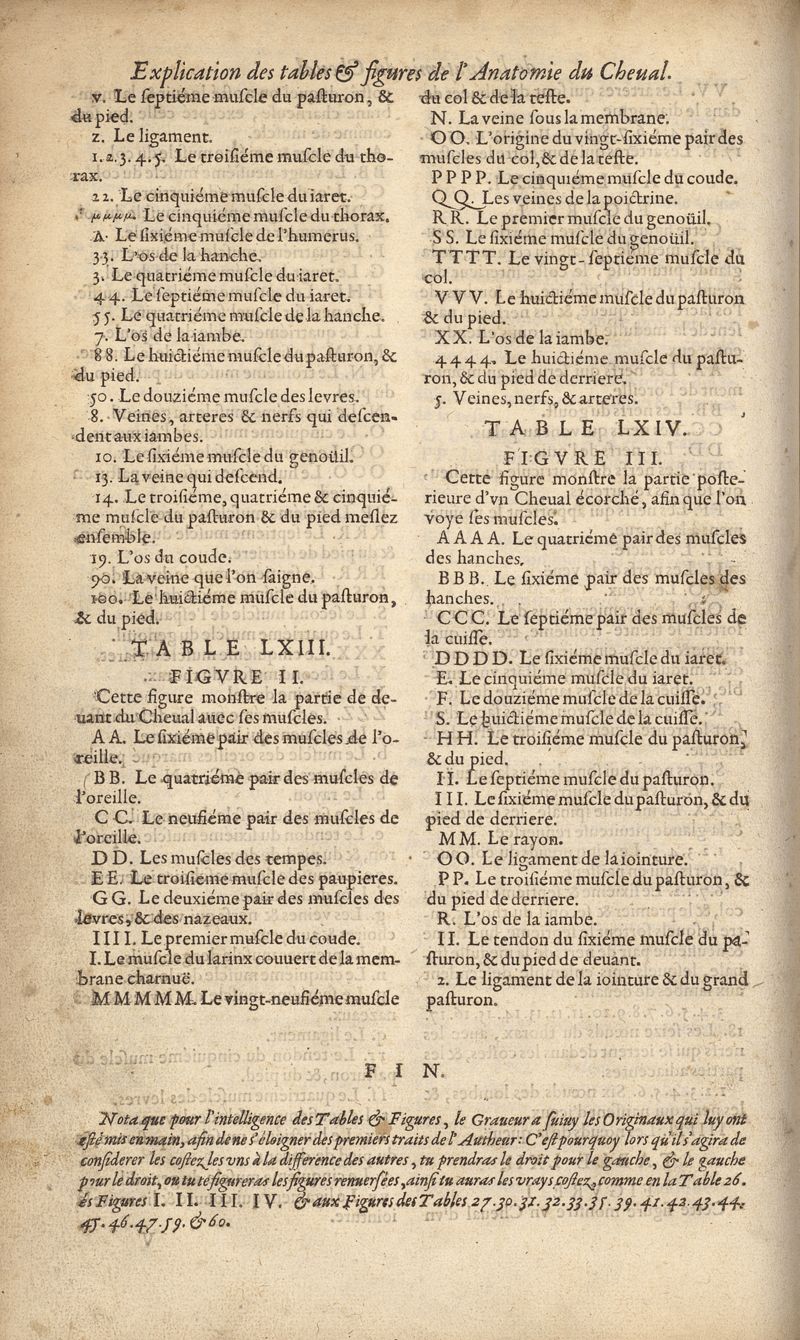 Explication des tables & figures de l'Anatomie du Cheual.
v. Le ſeptiéme muſcle du paſturon, &
du pied.
z. Le ligament.
1.2.3.4.5. Le troiſiéme muſcle du tho-
rax.
22. Le cinquiéme muſcle du iaret.
μμμμ. Le cinquiéme muſcle du thorax.
A. Le ſixiéme muſcle de l'humerus.
33. L'os de la hanche.
3. Le quatriéme muſcle du iaret.
44. Le ſeptiéme muſcle du iaret.
55. Le quatriéme muſcle de la hanche.
7. L'os de la iambe.
88. Le huictiéme muſcle du paſturon, &
du pied.
50. Le douziéme muſcle des levres.
8. Veines, arteres & nerfs qui deſcen-
dent aux iambes.
10. Le ſixiéme muſcle du genoüil.
13. La veine qui deſcend.
14. Le troiſiéme, quatriéme & cinquié-
me muſcle du paſturon & du pied meſlez
enſemble.
19. L'os du coude.
90. La veine que l'on ſaigne.
100. Le huictiéme muſcle du paſturon,
& du pied.
TABLE LXIII.
FIGVRE II.
Cette figure monſtre la partie de de-
uant du Cheual auec ſes muſcles.
A A. Le ſixiéme pair des muſcles de l'o-
reille.
B B. Le quatriéme pair des muſcles de
l'oreille.
C C. Le neufiéme pair des muſcles de
l'oreille.
D D. Les muſcles des tempes.
E E. Le troiſiéme muſcle des paupieres.
G G. Le deuxiéme pair des muſcles des
levres, & des nazeaux.
I I I I. Le premier muſcle du coude.
I. Le muſcle du larinx couuert de la mem-
brane charnuë.
M M M M M. Le vingt-neufiéme muſcle
du col & de la teſte.
N. La veine ſous la membrane.
O O. L'origine du vingt-ſixiéme pair des
muſcles du col, & de la teſte.
P P P P. Le cinquiéme muſcle du coude.
Q Q. Les veines de la poictrine.
R R. Le premier muſcle du genoüil.
S S. Le ſixiéme muſcle du genoüil.
T T T T. Le vingt-ſeptiéme muſcle du
col.
V V V. Le huictiéme muſcle du paſturon
& du pied.
X X. L'os de la iambe.
4 4 4 4. Le huictiéme muſcle du paſtu-
ron, & du pied de derriere.
5. Veines, nerfs, & arteres.
TABLE LXIV.
FIGVRE III.
Cette figure monſtre la partie poſte-
rieure d'vn Cheual écorché, afin que l'on
voye ſes muſcles.
A A A A. Le quatriéme pair des muſcles
des hanches.
B B B. Le ſixiéme pair des muſcles des
hanches.
C C C. Le ſeptiéme pair des muſcles de
la cuiſſe.
D D D D. Le ſixiéme muſcle du iaret.
E. Le cinquiéme muſcle du iaret.
F. Le douziéme muſcle de la cuiſſe.
S. Le huictiéme muſcle de la cuiſſe.
H H. Le troiſiéme muſcle du paſturon,
& du pied.
I I. Le ſeptiéme muſcle du paſturon.
I I I. Le ſixiéme muſcle du paſturon, & du
pied de derriere.
M M. Le rayon.
O O. Le ligament de la iointure.
P P. Le troiſiéme muſcle du paſturon, &
du pied de derriere.
R. L'os de la iambe.
I I. Le tendon du ſixiéme muſcle du pa-
ſturon, & du pied de deuant.
2. Le ligament de la iointure & du grand
paſturon.
F I N.
Nota que pour l'intelligence des Tables & Figures, le Graueur a ſuiuy les Originaux qui luy ont
eſté mis en main, afin de ne s'éloigner des premiers traits de l'Autheur: C'eſt pourquoy lors qu'il s'agira de
conſiderer les coſtez les vns à la difference des autres, tu prendras le droit pour le gauche, & le gauche
pour le droit, ou tu te figureras les figures renuerſées, ainſi tu auras les vrays coſtez, comme en la Table 26.
és Figures I. II. III. IV. & aux Figures des Tables 27.30.31.32.33.35.39.41.42.43.44.
45.46.47.59.&60.